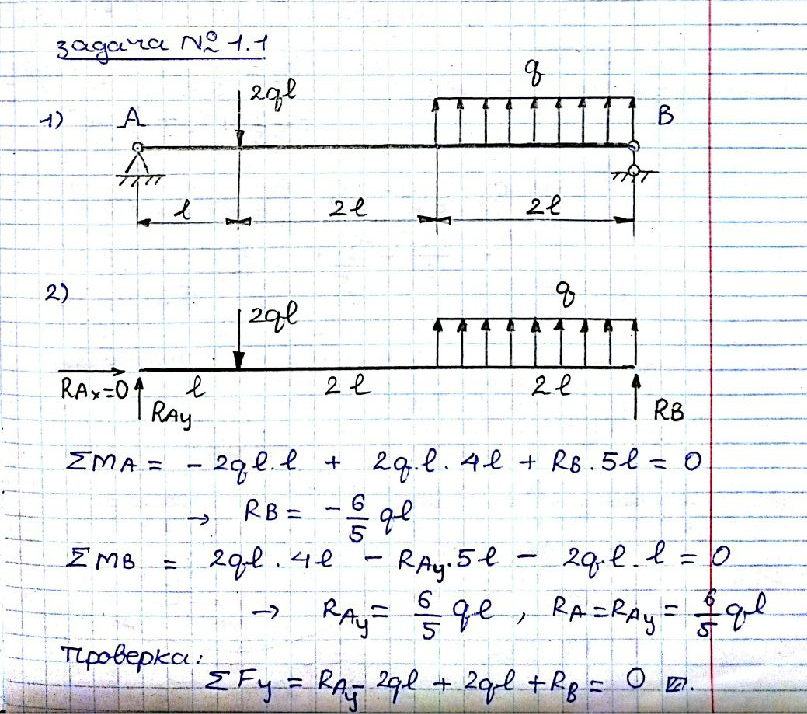 задача № 1.1
1) A 2ql q B
l 2l 2l
2) 2ql q
RAx=0 l 2l 2l
RAy RB
ΣMA = - 2ql·l + 2q·l·4l + RB·5l = 0
→ RB = - 6/5 ql
ΣMB = 2ql·4l - RAy·5l - 2q·l·l = 0
→ RAy = 6/5 ql , RA = RAy = 6/5 ql
Проверка:
ΣFy = RAy - 2ql + 2ql + RB = 0